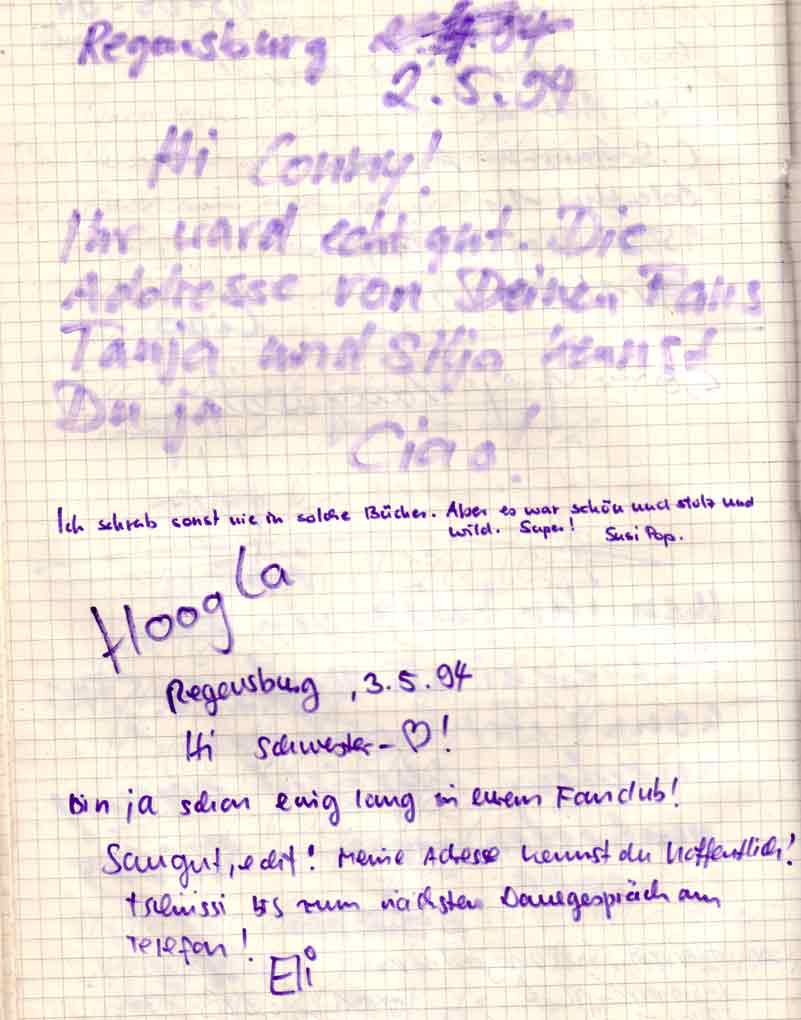 Regensburg
2.5.94
Hi Conny!
Ihr ward echt gut. Die
Addresse von Deinen Fans
Tanja und Silja kennst
Du ja
Ciao!
Ich schrieb sonst nie in solche Bücher. Aber es war schön und stolz und
wild. Super! Susi Pop.
Hoogla
Regensburg, 3.5.94
Hi Schwester-♡!
bin ja schon ewig lang in eurem Fanclub!
Saugut, echt! Meine Adresse kennst du hoffentlich!
tschüssi bis zum nächsten Dauergespräch am
Telefon!
Eli